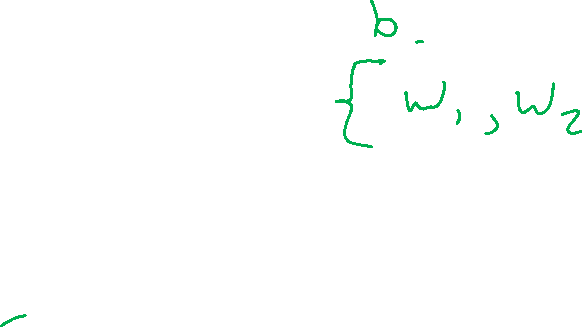 b.
{ w₁, w₂